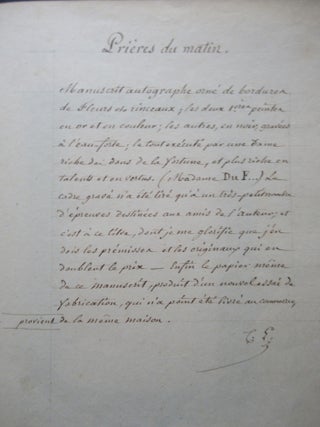 Prières du matin.
Manuscrit autographe orné de bordures
de fleurs et rinceaux; les deux 1ères peintes
en or et en couleur; les autres, en noir, gravées
à l'eau-forte; le tout exécuté par une Dame
riche des dons de la fortune, et plus riche en
talents et en vertus. (Madame Du F..) Le
cadre gravé n'a été tiré qu'à un très-petit nombre
d'épreuves destinées aux amis de l'auteur; et
c'est à ce titre, dont je me glorifie que j'en
dois les prémisses et les originaux qui en
doublent le prix — Enfin le papier même
de ce manuscrit, produit d'un nouvel essai de
fabrication, qui n'a point été livré au commerce,
provient de la même maison.